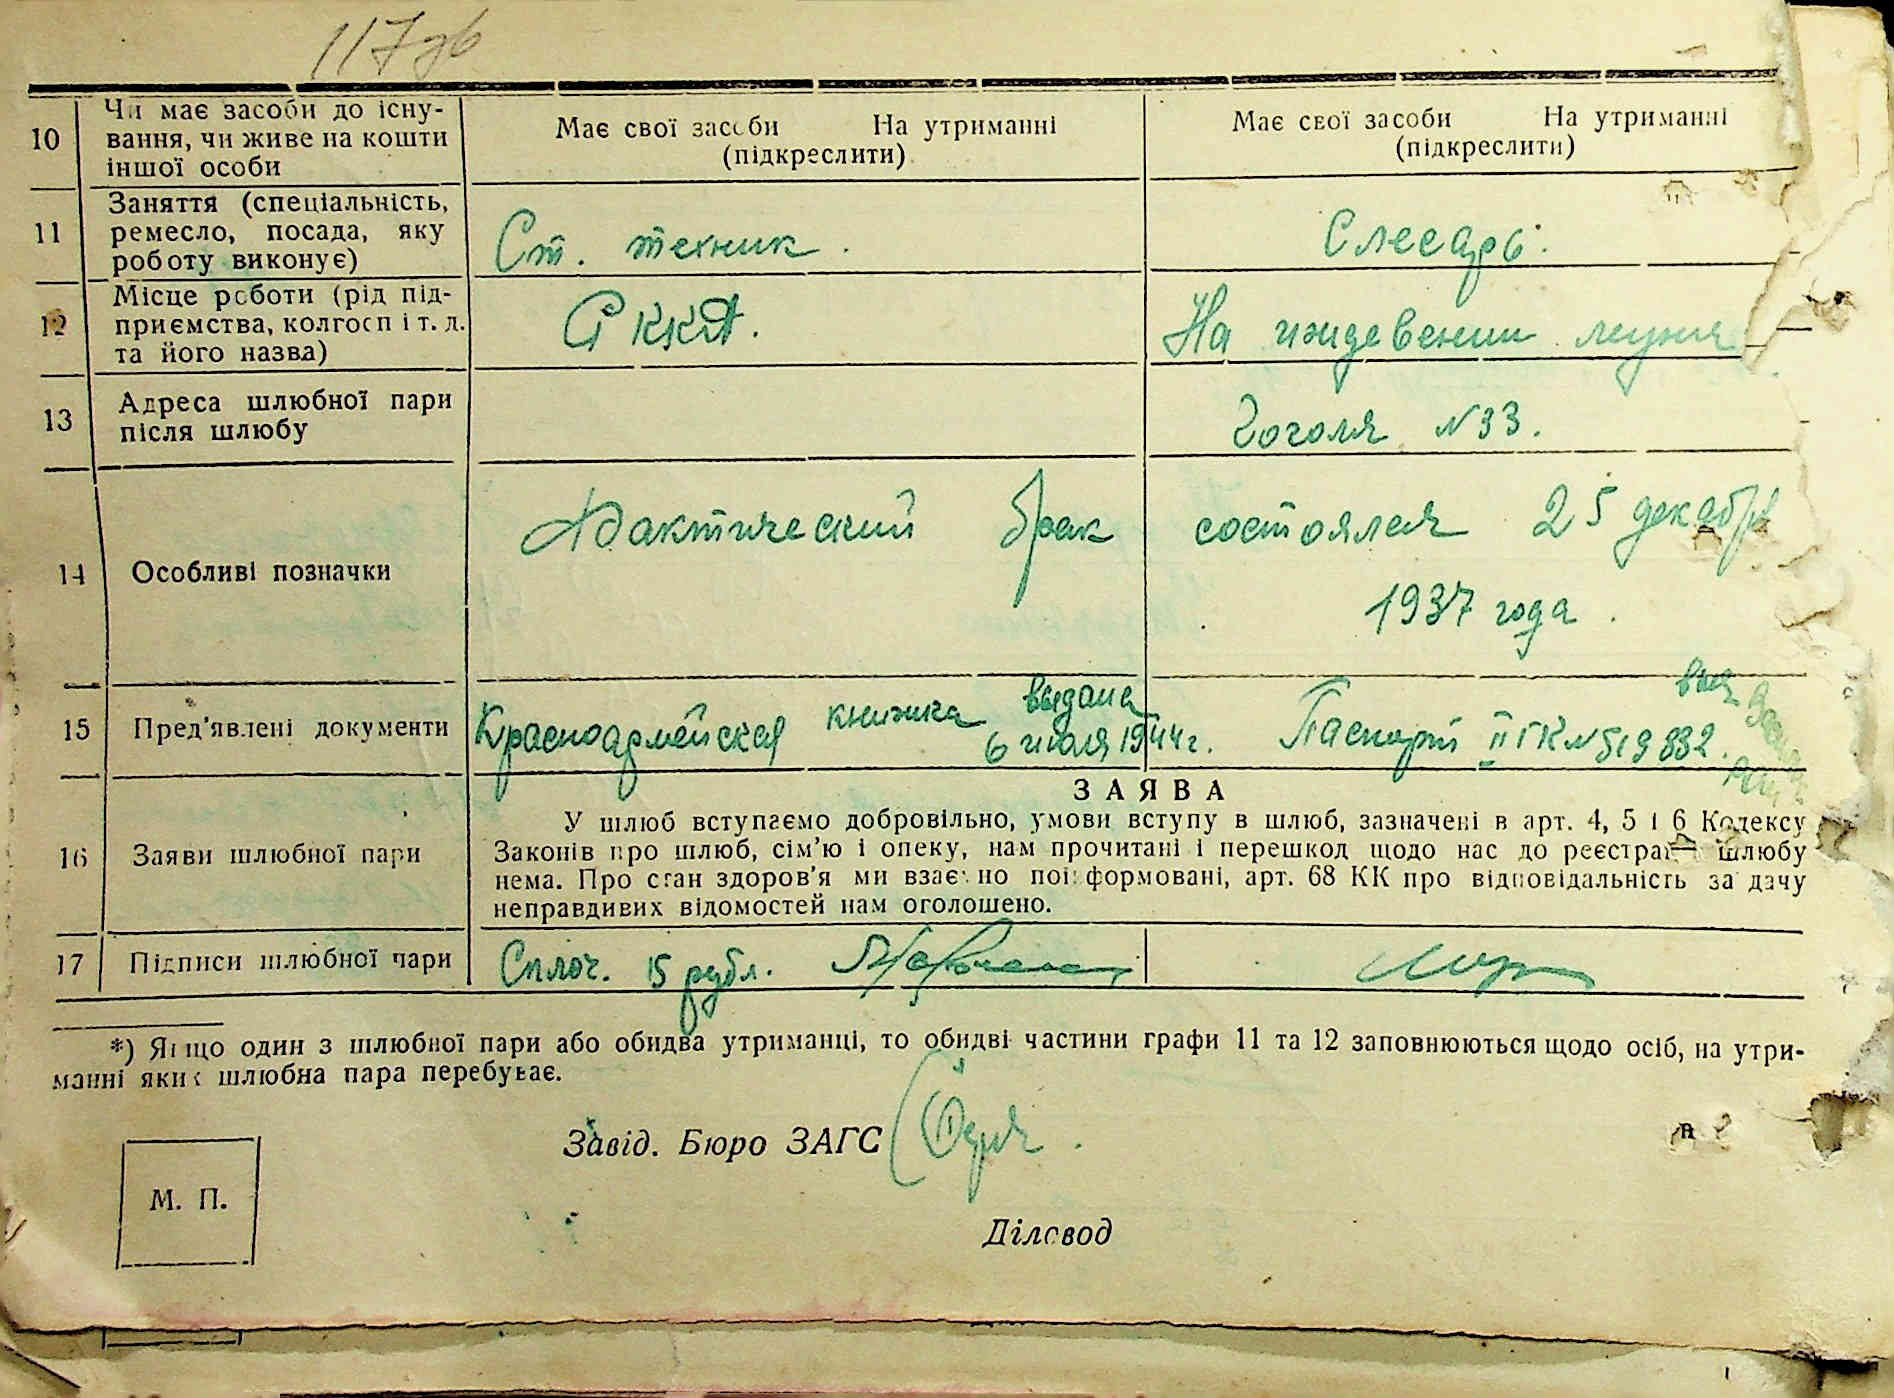 117 зв
10 Чи має засоби до існу-
вання, чи живе на кошти
іншої особи
Має свої засоби На утриманні
(підкреслити)
Має свої засоби На утриманні
(підкреслити)
11 Заняття (спеціальність,
ремесло, посада, яку
роботу виконує)
Ст. техник.
Слесарь.
12 Місце роботи (рід під-
приємства, колгосп і т. д.
та його назва)
РККА.
На иждевении мужа
13 Адреса шлюбної пари
після шлюбу
Гоголя N 33.
14 Особливі позначки
Фактический брак состоялся 25 декабря
1937 года.
15 Пред'явлені документи
Красноармейская книжка выдана
6 июля 1944 г.
Паспорт II ГК N 519832.
16 Заяви шлюбної пари
ЗАЯВА
У шлюб вступаємо добровільно, умови вступу в шлюб, зазначені в арт. 4, 5 і 6 Кодексу
Законів про шлюб, сім'ю і опеку, нам прочитані і перешкод щодо нас до реєстрації шлюбу
нема. Про стан здоров'я ми взаємно поінформовані, арт. 68 КК про відповідальність за дачу
неправдивих відомостей нам оголошено.
17 Підписи шлюбної пари
Сплоч. 15 рубл.
*) Якщо один з шлюбної пари або обидва утриманці, то обидві частини графи 11 та 12 заповнюються щодо осіб, на утри-
манні яких шлюбна пара перебуває.
Завід. Бюро ЗАГС
М. П.
Діловод